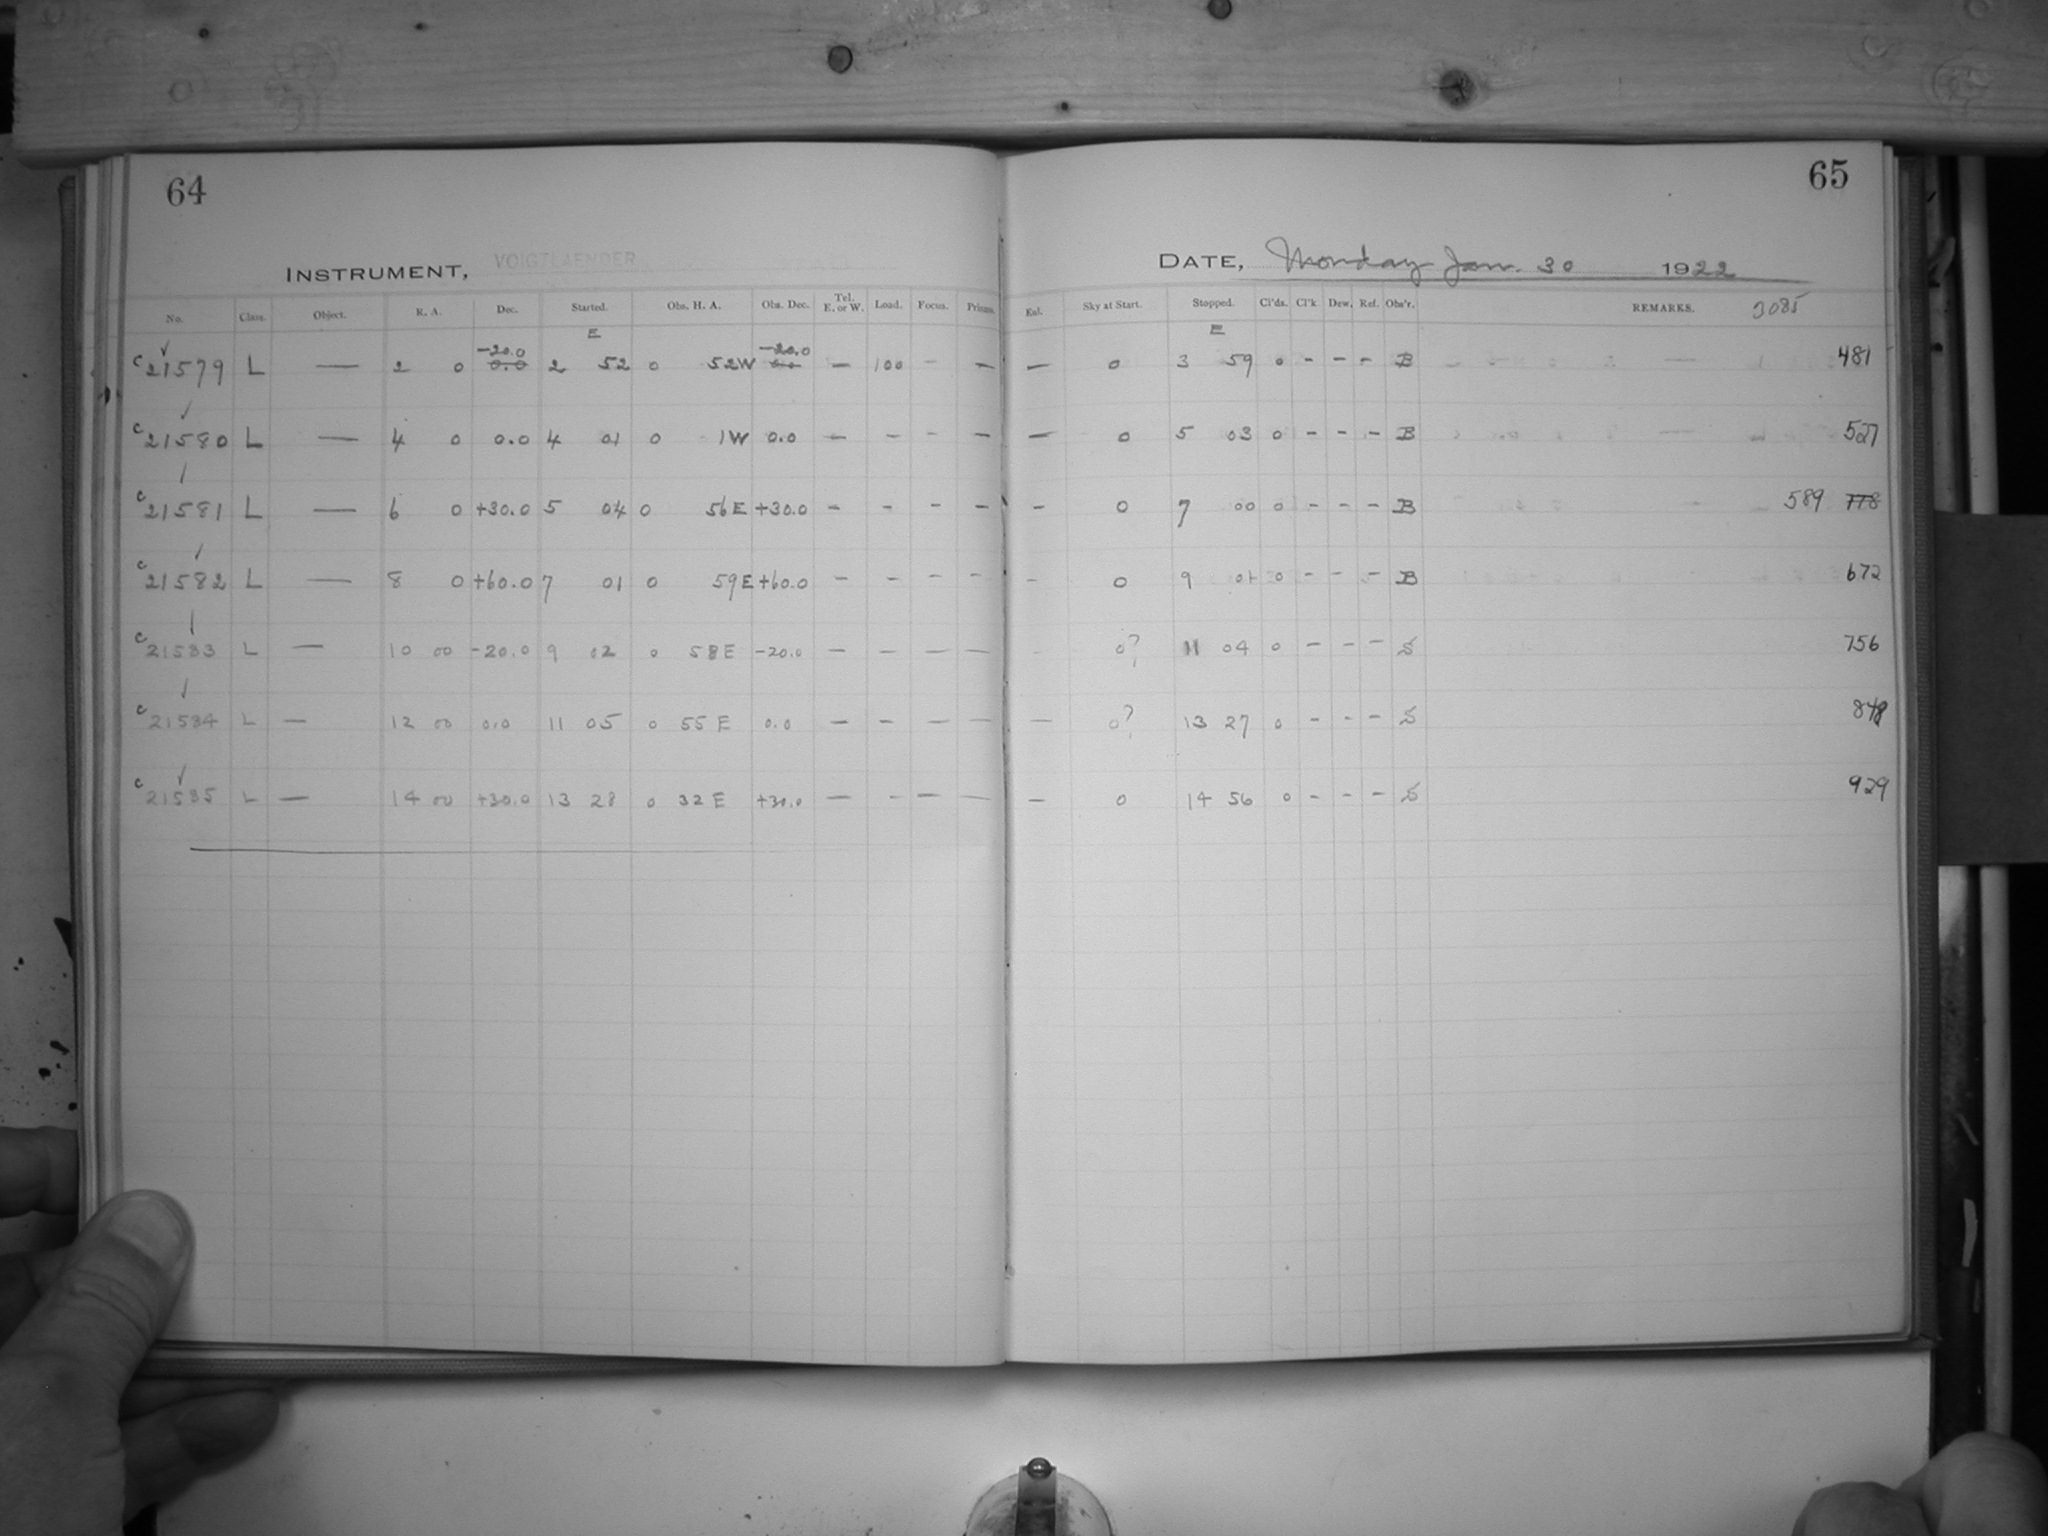 64
65
INSTRUMENT, VOIGTLAENDER
DATE, Monday Jan. 30 1922
No. Class. Object. R. A. Dec. Started. Obs. H. A. Obs. Dec. Tel. E. or W. Load. Focus. Prisms. Eul. Sky at Start. Stopped. Cl'ds. Cl'k Dew. Ref. Obs'r. REMARKS. 3085
E E
-20.0 -20.0
c 21579 L — 2 0 0.0 2 52 0 52W 0.0 — 100 - — — 0 3 59 0 - - - B 481
c 21580 L — 4 0 0.0 4 01 0 1W 0.0 — - - — — 0 5 03 0 - - - B 527
c 21581 L — 6 0 +30.0 5 04 0 56E +30.0 - - - - - 0 7 00 0 - - - B 589 778
c 21582 L — 8 0 +60.0 7 01 0 59E +60.0 - - - - - 0 9 01 0 - - - B 672
c 21583 L — 10 00 -20.0 9 02 0 58E -20.0 — — — — - 0? 11 04 0 - - - S 756
c 21584 L — 12 00 0.0 11 05 0 55 E 0.0 — — — — — 0? 13 27 0 - - - S 848
c 21585 L — 14 00 +30.0 13 28 0 32 E +30.0 — - — — — 0 14 56 0 - - - S 929